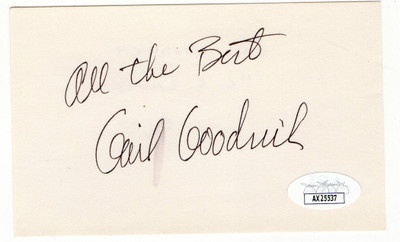 All the Best
Gail Goodrich
AX25537